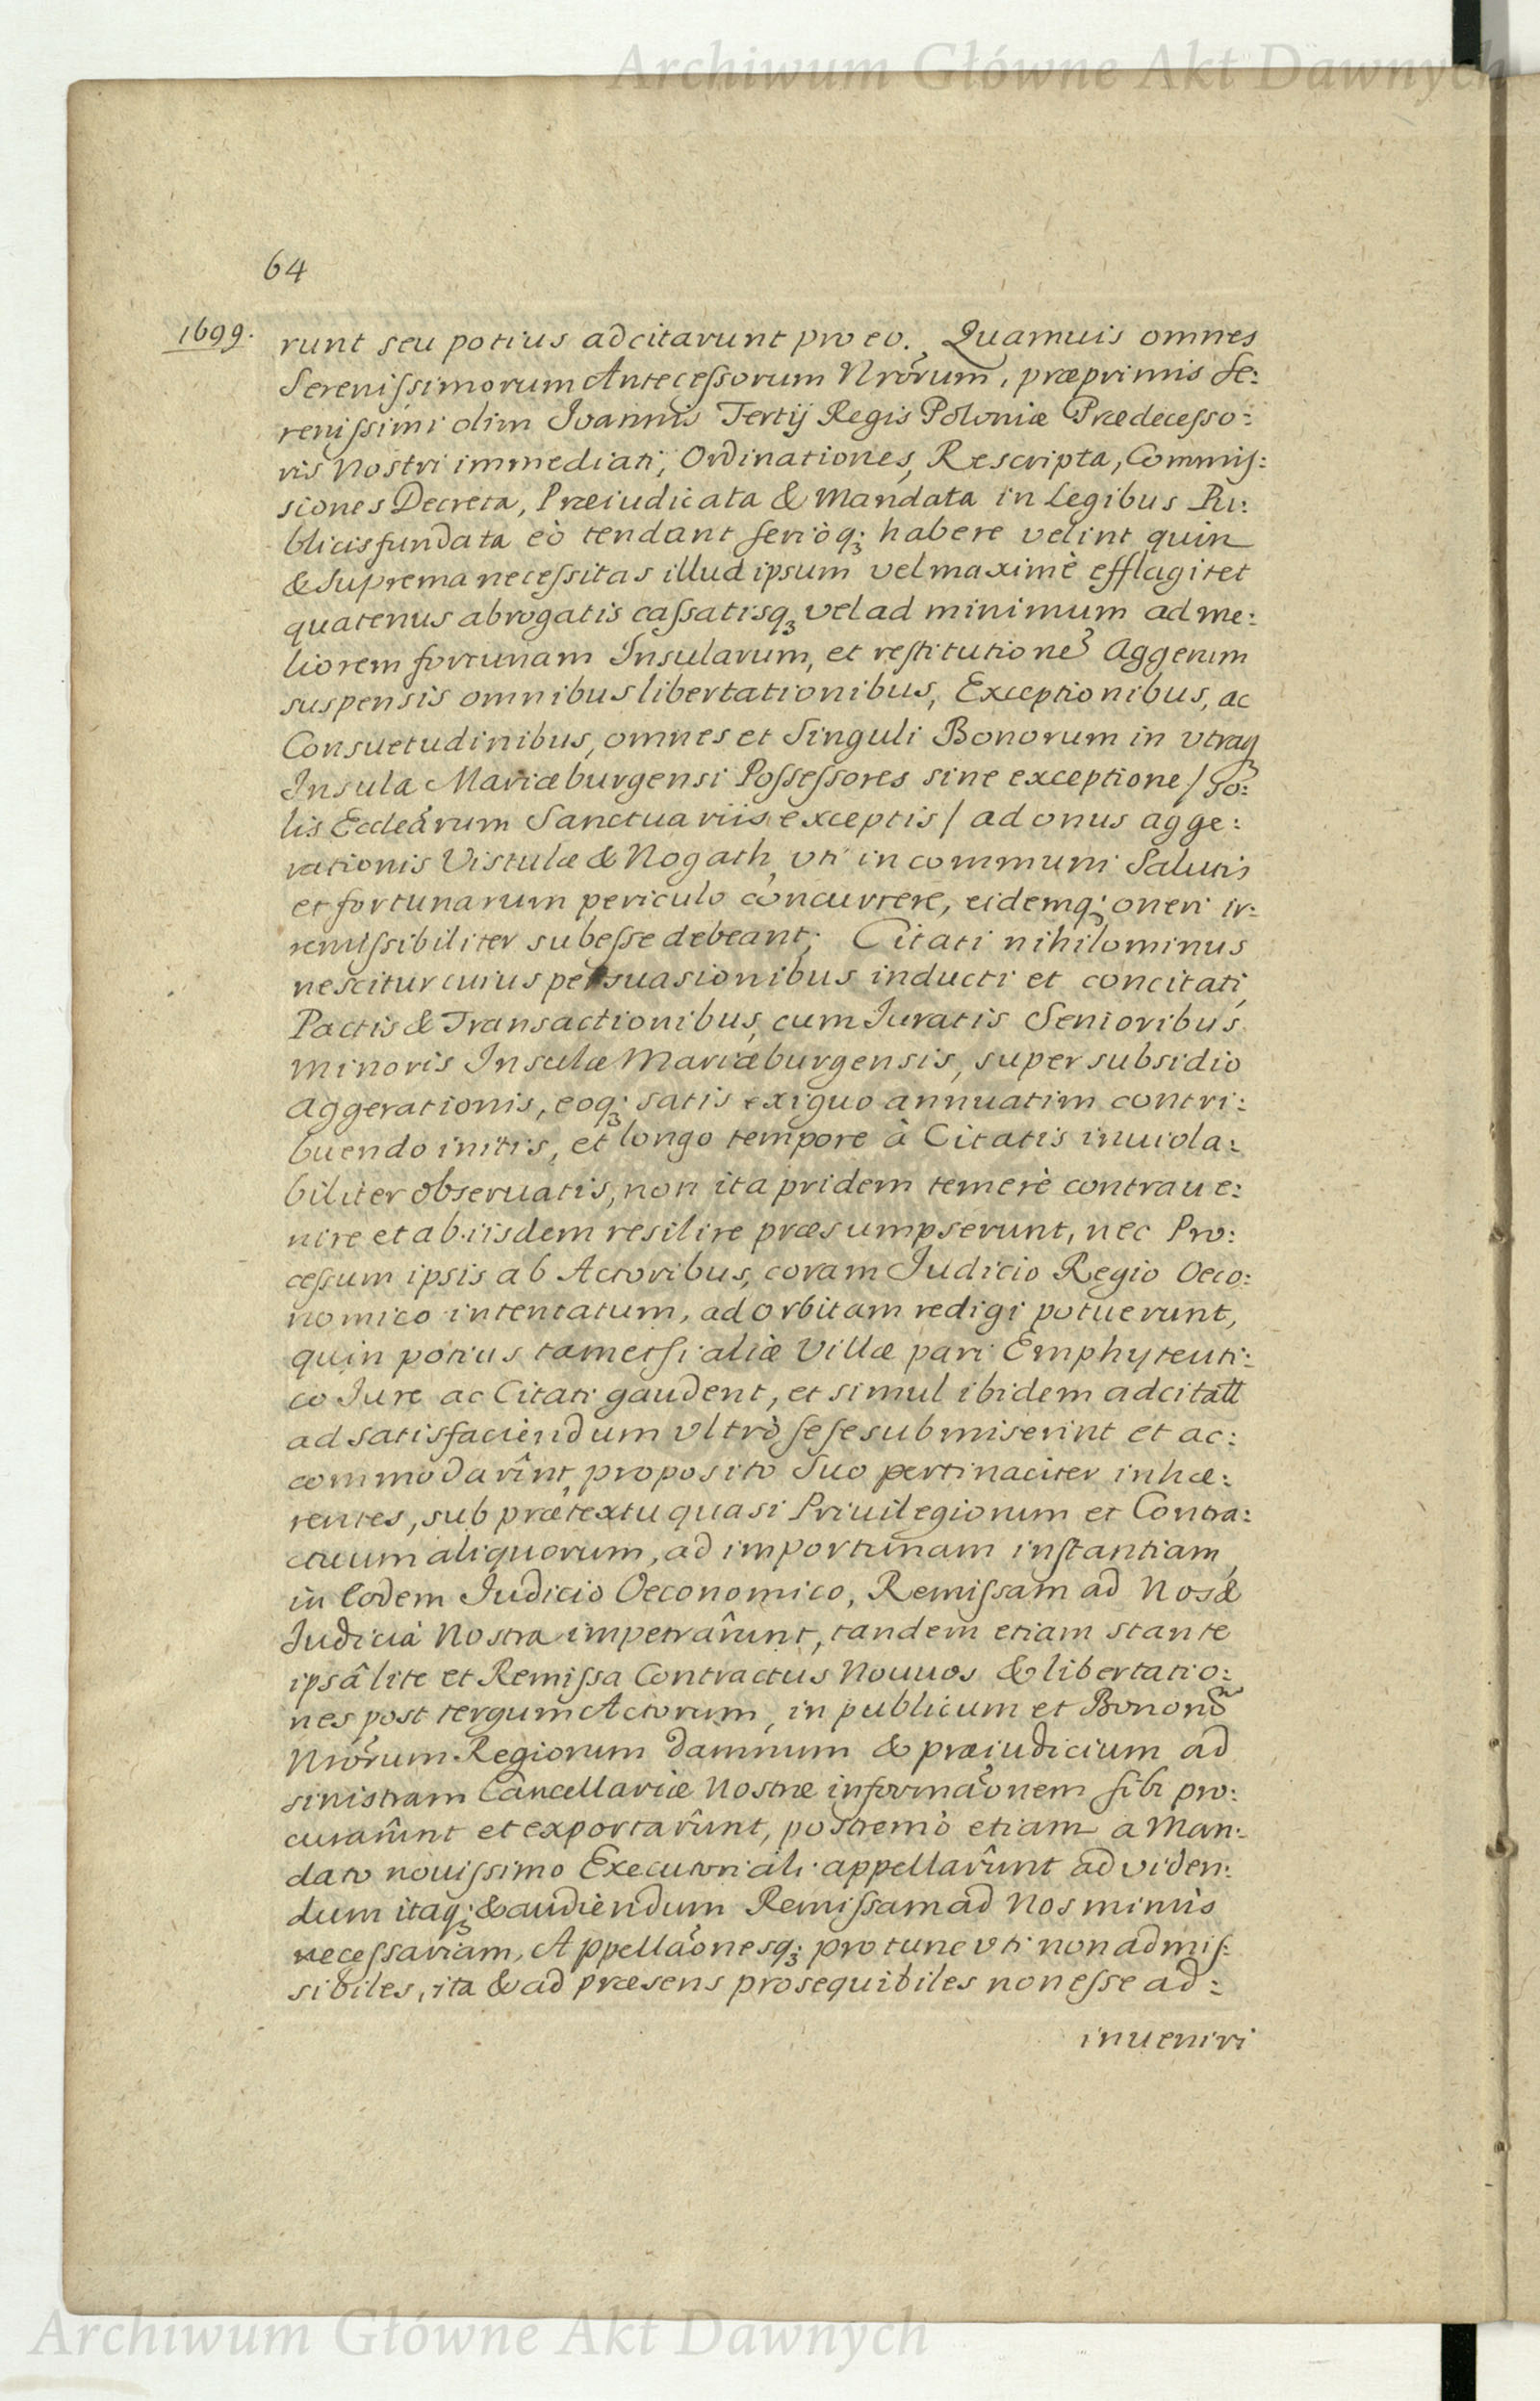 Archiwum Główne Akt Dawnych
64
1699. runt seu potius adcitarunt pro eo. Quamuis omnes
Serenißimorum Anteceßorum Nrõrum, præprimis Se:
renißimi olim Ioannis Tertij Regis Poloniæ Prædeceßo:
ris Nostri immediati, Ordinationes, Rescripta, Commis:
siones Decreta, Præiudicata & Mandata in Legibus Pu:
blicis fundata eò tendant serioq; habere velint quin
& Suprema neceßitas illud ipsum vel maximè efflagitet
quatenus abrogatis caßatisq; vel ad minimum ad me:
liorem fortunam Insularum, et restitutione͂ Aggerum
suspensis omnibus libertationibus, Exceptionibus, ac
Consuetudinibus, omnes et Singuli Bonorum in vtraq;
Insula Mariæburgensi Poßeßores sine exceptione / So:
lis Eccleãrum Sanctuariis exceptis / ad onus agge:
rationis Vistulæ & Nogath, vti in communi Salutis
et fortunarum periculo concurrere, eidemq; oneri ir:
remißibiliter subeße debeant; Citati nihilominus
nescitur cuius persuasionibus inducti et concitati,
Pactis & Transactionibus, cum Iuratis Senioribus
minoris Insulæ Mariæburgensis, super subsidio
Aggerationis, eoq; satis exiguo annuatim contri:
buendo initis, et longo tempore à Citatis inuiola:
biliter obseruatis, non ita pridem temerè contraue:
nire et ab iisdem resilire præsumpserunt, nec Pro:
ceßum ipsis ab Actoribus, coram Iudicio Regio Oeco:
nomico intentatum, ad orbitam redigi potuerunt,
quin potius tametsi aliæ Villæ pari Emphyteuti:
co Iure ac Citati gaudent, et simul ibidem adcitatt
ad satisfaciendum vltrò sese submiserint et ac:
commodarînt, proposito Suo pertinaciter inhæ:
rentes, sub prætextu quasi Priuilegiorum et Contra:
ctuum aliquorum, ad importunam instantiam,
in Eodem Iudicio Oeconomico, Remißam ad Nos &
Iudicia Nostra impetrarûnt, tandem etiam stante
ipsâ lite et Remißa Contractus Nouuos & libertatio:
nes post tergum Actorum, in publicum et Bonorũ
Nrõrum Regiorum damnum & præiudicium ad
sinistram Cancellariæ Nostræ informãonem sibi pro:
curarûnt et exportarûnt, postremò etiam a Man:
dato nouißimo Executoriali appellarûnt ad viden:
dum itaq; & audiendum Remißam ad Nos minùs
neceßariam, Appellãonesq; pro tunc vti non admis:
sibiles, ita & ad præsens prosequibiles non eße ad:
inueniri
Archiwum Główne Akt Dawnych